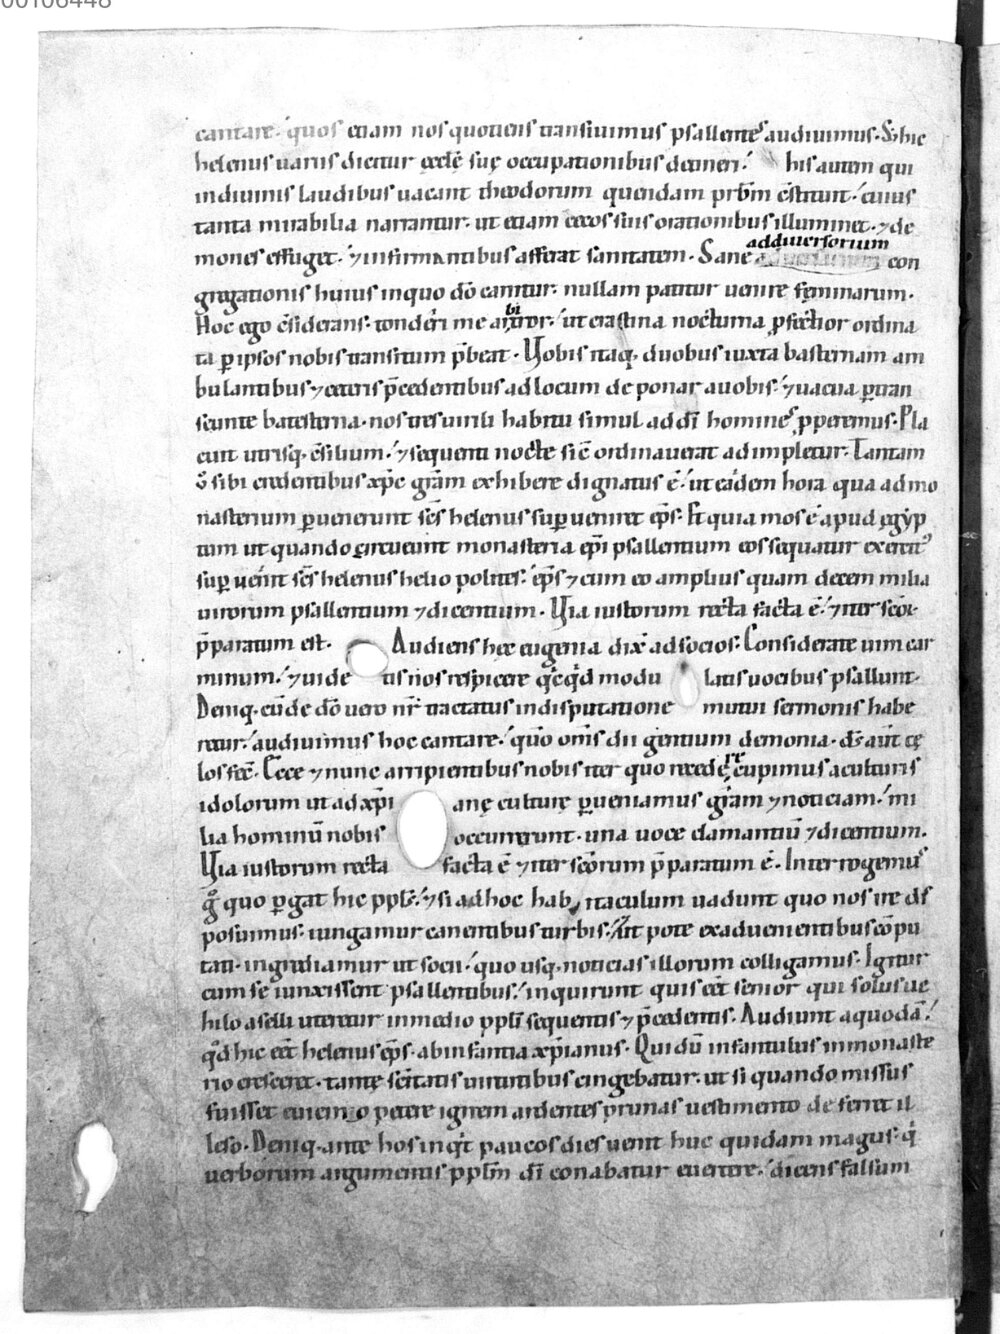 00106448
cantare. quos etiam nos quotiens transiuimus psallentes audiuimus. S; hic
helenus uariis dicitur ęcclę̄ suę occupationibus detineri. his autem qui
indiuinis laudibus uacant theodorum quendam prb̄m c̄stituit. cuius
tanta mirabilia narrantur. ut etiam cecos suis orationibus illuminet. ⁊ de
mones effuget. ⁊ infirmantibus afferat sanitatem. Sane
adduersorium
con
gregationis huius inquo dō canitur. nullam patitur uenire fęminarum.
Hoc ego c̄siderans. tonderi me arbitror. ut crastina nocturna ꝓfectior ordina
ta ꝑ ipsos nobis transitum p̄beat. Vobis itaq; duobus iuxta basternam am
bulantibus ⁊ ceteris p̄cedentibus ad locum deponar auobis. ⁊ uacua ꝑtran
seunte batesterna. nos tres uirili habitu simul ad dī homines ꝓperemus. Pla
cuit utrisq; c̄silium. ⁊ sequenti nocte sic̄ ordinauerat adimpletur. Tantam
ū sibi credentibus xp̄c grām exhibere dignatus ē. ut eadem hora qua admo
nasterium ꝑuenerunt sc̄s helenus suꝑueniret ep̄s. Et quia mos ē apud ęgyp
tum ut quando circueunt monasteria ep̄i psallentium eos sequatur exercit᷒
suꝑuenit sc̄s helenus helio polites. ep̄s ⁊ cum eo amplius quam decem milia
uirorum psallentium ⁊ dicentium. Via iustorum recta facta ē. ⁊ iter sc̄or.
p̄paratum est. Audiens hęc eugenia dix̄ ad socios. Considerate uim car
minum. ⁊ uide tis nos respicere q̇cq̇d modu latis uocibus psallunt.
Deniq; cū de dō uero nr̄ tractatus indisputatione mutui sermonis habe
retur. audiuimus hoc cantare. quō om̄s dii gentium demonia. dn̄s aut̄ cę
los fec̄. Ecce ⁊ nunc arripientibus nobis iter quo recedere cupimus aculturis
idolorum ut ad xp̄i anę culturę ꝑueniamus grām ⁊ noticiam. mi
lia hominū nobis occurrerunt. una uoce clamantiū ⁊ dicentium.
Via iustorum recta facta ē ⁊ iter sc̄orum p̄paratum ē. Interrogemus
g̊ quo ꝑgat hic ppl̄s. ⁊ si ad hoc habitaculum uadunt quo nos ire dis
posuimus. iungamur canentibus turbis. Aūt pote exaduenientibus cōpu
tati. ingrediamur ut socii. quo usq; noticias illorum colligamus. Igitur
cum se iunxissent psallentibus. inquirunt quis eēt senior qui solus ue
hilo aselli uteretur inmedio ppl̄i sequentis ⁊ p̄cedentis. Audiunt aquodā.
q̊d hic eēt helenus ep̄s. abinfantia xp̄ianus. Qui dū infantulus inmonaste
rio cresceret. tantę sc̄itatis uirtutibus cingebatur. ut si quando missus
fuisset euicino petere ignem ardentes prunas uestimento deferret il
leso. Deniq; ante hos inq̇t paucos dies uenit huc quidam magus. q̇
uerborum argumentis ppl̄m dī conabatur euertere. dicens falsum